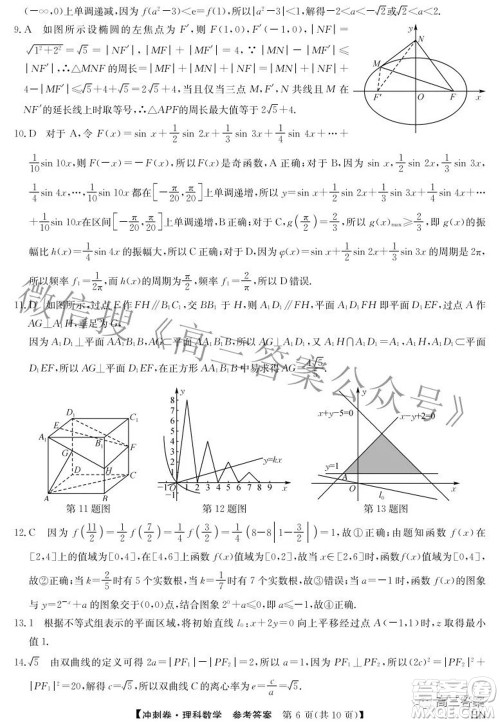 (−∞,0)上单调递减,因为 f(a²−3)<c=f(1),所以|a²−3|<1,解得−2<a<−√2或√2<a<2.
9.A 如图所示设椭圆的左焦点为 F′,则 F(1,0),F′(−1,0),则|NF|=|NF′|=
√(1²+2²)=√5=|NF′|,|MF|+|MF′|=4,∵|NM|−|MF′|≤
|NF′|,∴△MNF的周长=|MF|+|NF|+|MN|=|MN|+|NF|+
4−|MF′|≤√5+4+√5=2√5+4,当且仅当三点 M,F′,N 共线且 M 在
NF′的延长线上时取等号,∴△APF的周长最大值等于 2√5+4.
y
N
M
F′
O
F
x
10.D 对于 A,令 F(x)=sin x+1/2 sin 2x+1/3 sin 3x+1/4 sin 4x+⋯+
1/10 sin 10x,则 F(−x)=−F(x),所以 F(x)是奇函数,A 正确;对于 B,因为 sin x,1/2 sin 2x,1/3 sin 3x,
1/4 sin 4x,⋯,1/10 sin 10x 都在[−π/20,π/20]上单调递增,所以 G(x)=sin x+1/2 sin 2x+1/3 sin 3x+1/4 sin 4x+⋯
+1/10 sin 10x在区间[−π/20,π/20]上单调递增,B 正确;对于 C,g(π/2)=2/3,所以 g(x)max≥2/3,即 g(x)的振
幅比 h(x)=1/4 sin 4x 的振幅大,所以 C 正确;对于 D,因为 φ(x)=sin x+1/2 sin 2x+1/3 sin 3x 的周期是 2π,
所以频率 f₁=1/2π,而 h(x)的周期为 π/2,频率 f₂=2/π,f₁<f₂,所以 D 错误.
11.D 如图所示,过点 E 作 FH∥B₁C₁,交 BB₁ 于 H,则 A₁D₁∥FH,平面 A₁D₁FH 即平面 D₁EF,过点 A 作
AG⊥A₁H,垂足为 G.
因为 A₁D₁⊥平面 AA₁B₁B,AG⊂平面 AA₁B₁B,所以 A₁D₁⊥AG,
D₁EF,所以 AG=
D₁
C₁
A₁
B₁
F
G
H
E
D
C
A
B
第 11 题图
y
8
7
6
5
4
3
2
1
−1
O
1 2 3 4 5 6 7 8 9
x
y=kx
第 12 题图
x+y−5=0
x−y+2=0
y=1
A
O
x
l₀
第 13 题图
12.C 因为 f(11/2)=1/2 f(7/2)=1/4 f(3/2)=1/4(8−8|1−3/2|)=1,故①正确;由题可知函数 f(x)在
[2,4]上的值域为[0,4],在[4,6]上的值域为[0,2],在[6,8]上的值域为[0,1],故②正确;在函数 f(x)的图
象可知,当 k=2/5 时有 5 个实数根,当 k=6/7 时有 3 个实数根,故③错误;当 a=0 时,函数 f(x)的图象
与 y=2⁻ˣ+a 的图象交于(0,0)点,结合图象 2⁰+a≤0,即 a≤−1,故④正确.
13.1 根据不等式组表示的平面区域,将初始直线 l₀:x+2y=0 向上平移经过点 A(−1,1)时,z 取得最小
值 1.
14.√5 由双曲线的定义可得 2a=|PF₁|−|PF₂|=|PF₂|,所以|PF₂|=2a,|PF₁|=4a,
【冲刺卷·理科数学 参考答案 第 6 页(共 10 页)】
微信搜《高三答案公众号》